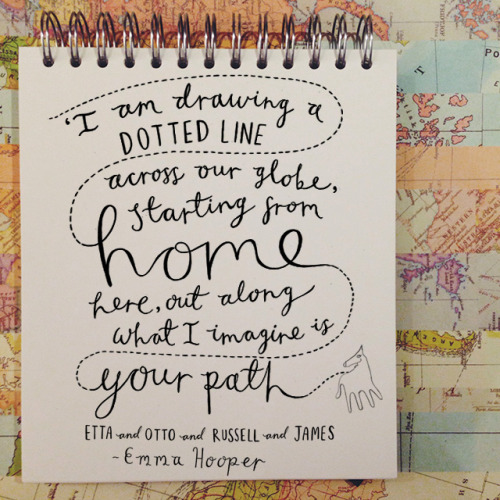 'I am drawing a
DOTTED LINE
across our globe,
starting from
home
here, out along
what I imagine is
your path
ETTA and OTTO and RUSSELL and JAMES
- Emma Hooper